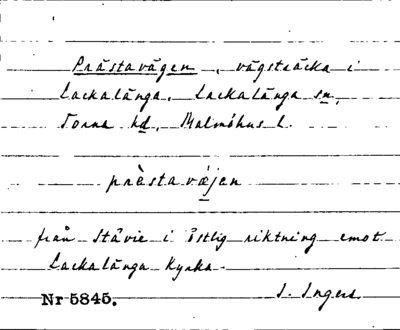 Prästavägen, vägsträcka i
Lackalänga, Lackalänga sn,
Torna hd, Malmöhus l.
prèsta vä́jen
från Stävie i östlig riktning emot
Lackalänga kyrka.
Nr 5845.
I. Ingers.